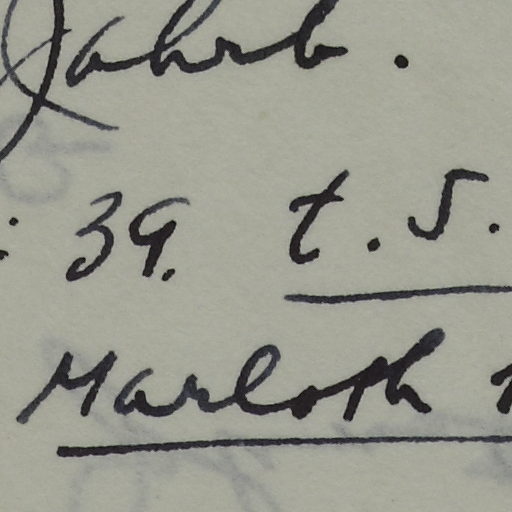 Jahrb.
: 39. t. 5.
Marloth